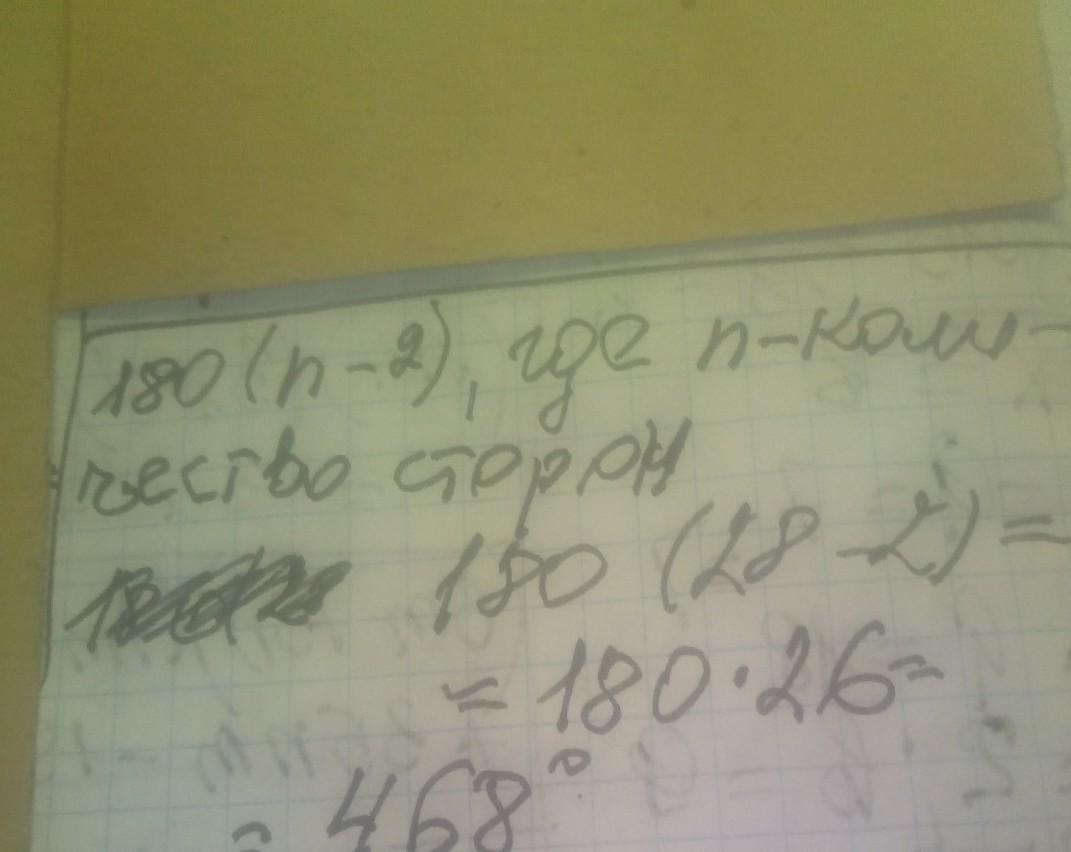 180(n-2), где n-коли-
чество сторон
180 (28-2)=
=180·26=
= 468°